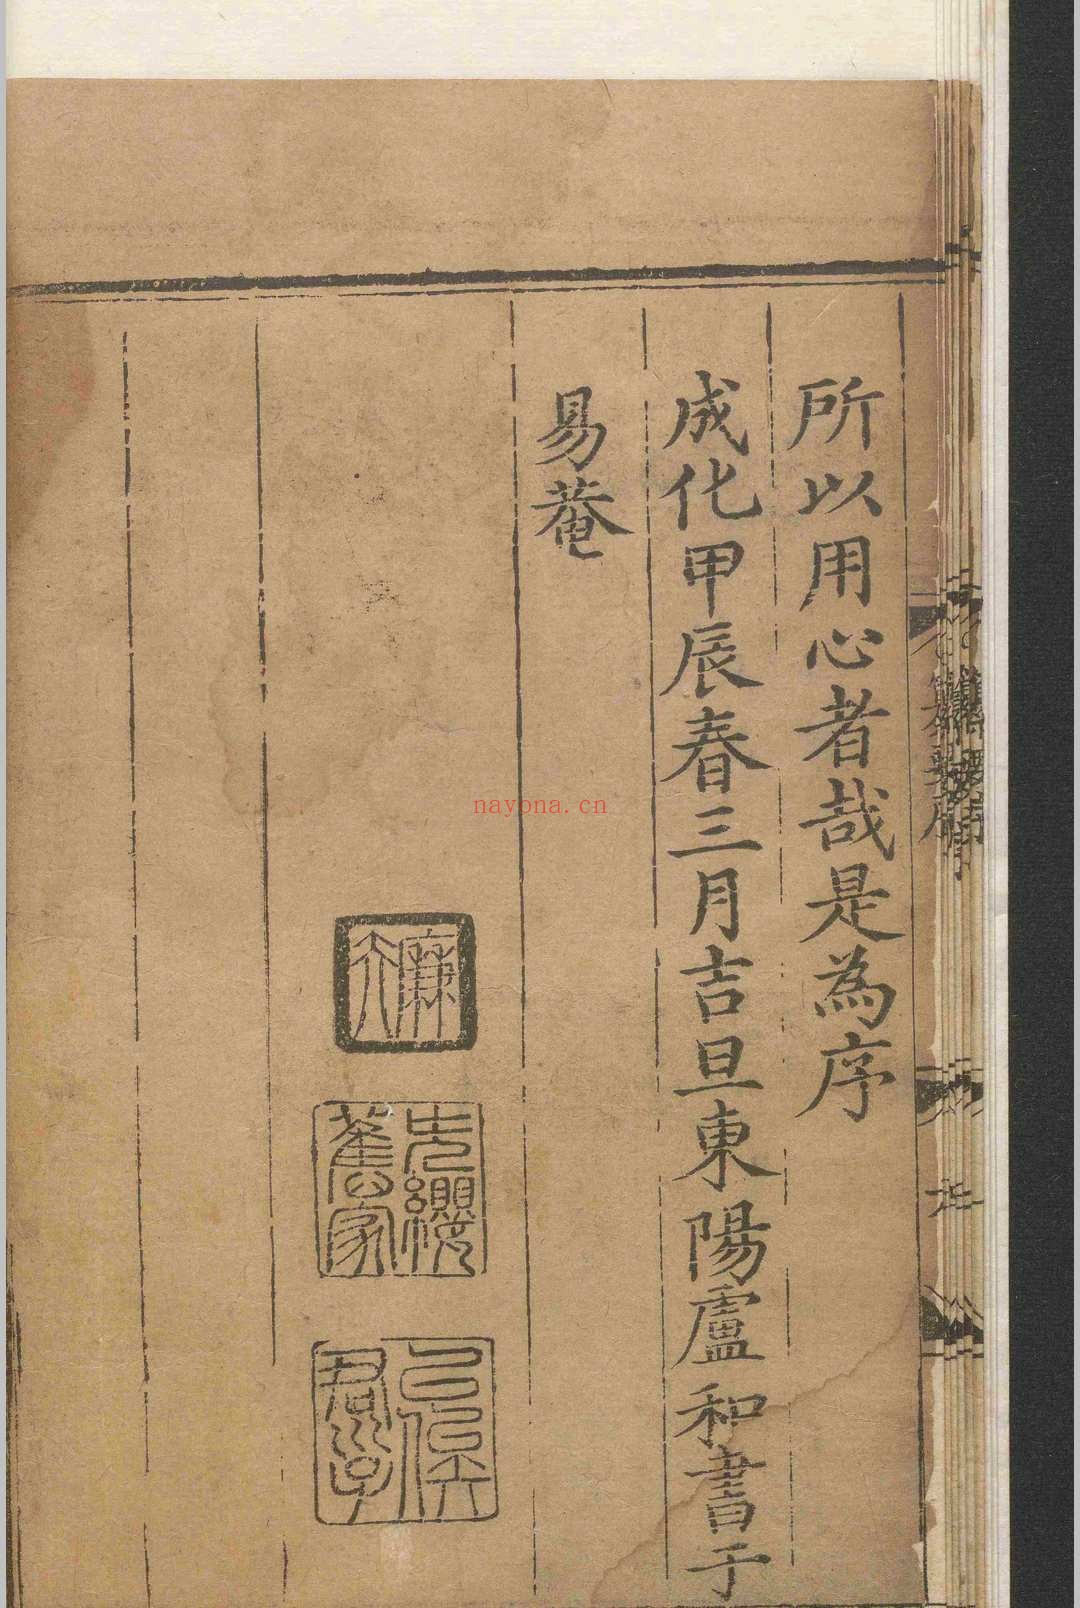 所以用心者哉是為序
成化甲辰春三月吉旦東陽盧和書于
易菴
廉夫
先纓舊家
nayona.cn